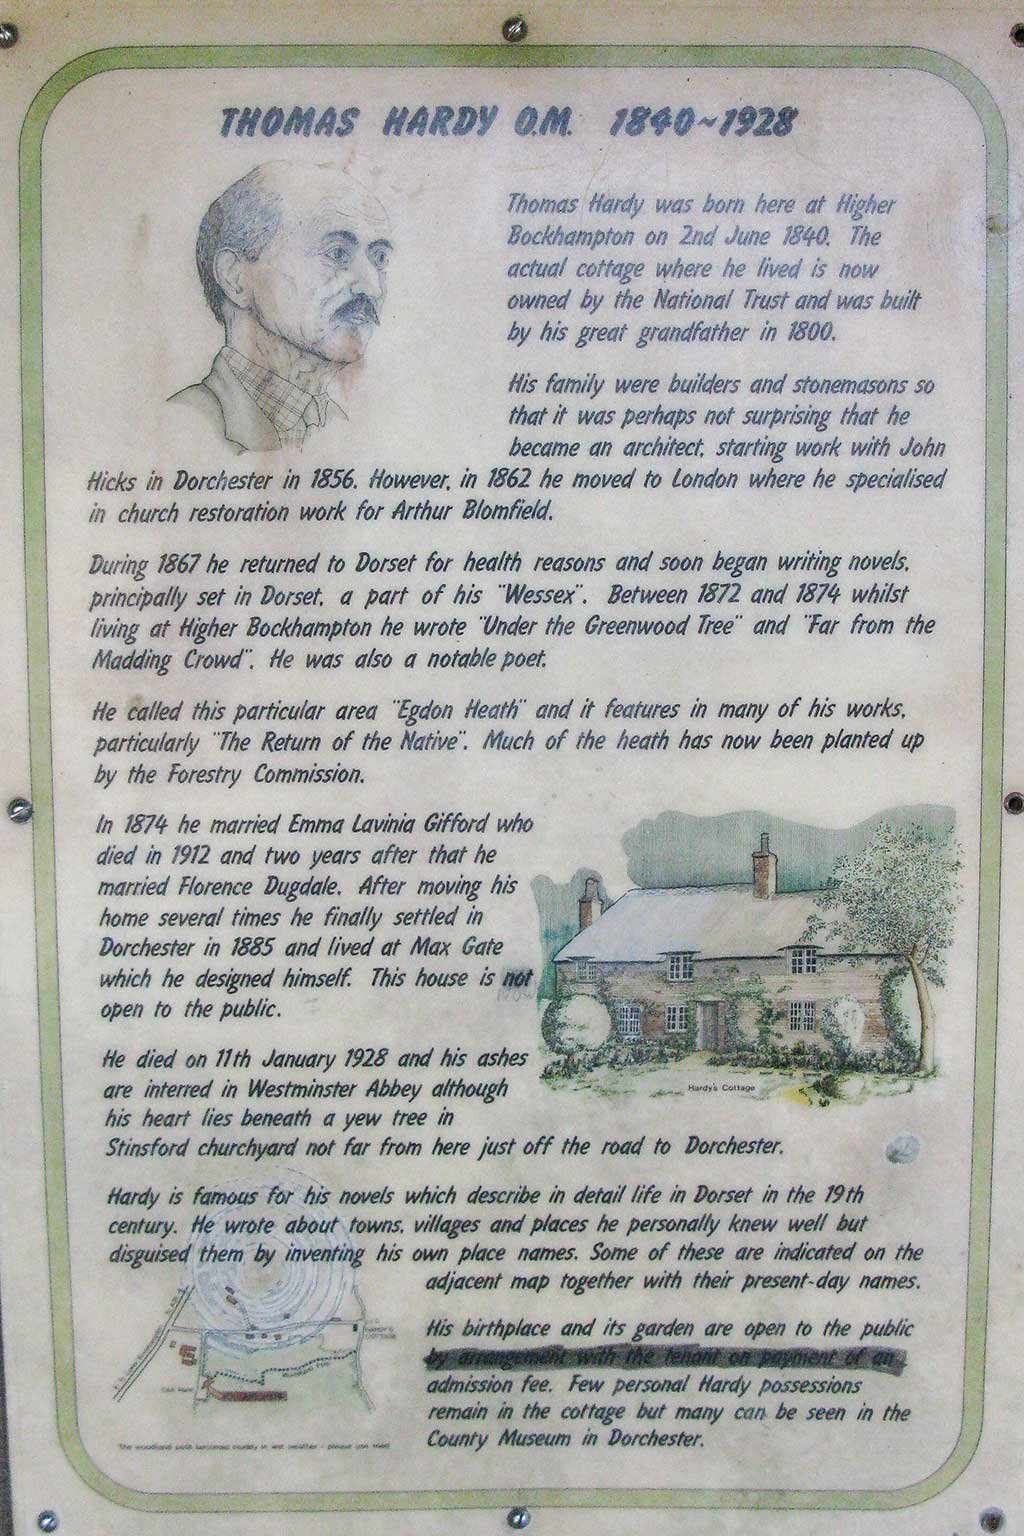 THOMAS HARDY O.M. 1840~1928
Thomas Hardy was born here at Higher
Bockhampton on 2nd June 1840. The
actual cottage where he lived is now
owned by the National Trust and was built
by his great grandfather in 1800.
His family were builders and stonemasons so
that it was perhaps not surprising that he
became an architect, starting work with John
Hicks in Dorchester in 1856. However, in 1862 he moved to London where he specialised
in church restoration work for Arthur Blomfield.
During 1867 he returned to Dorset for health reasons and soon began writing novels,
principally set in Dorset, a part of his "Wessex". Between 1872 and 1874 whilst
living at Higher Bockhampton he wrote "Under the Greenwood Tree" and "Far from the
Madding Crowd". He was also a notable poet.
He called this particular area "Egdon Heath" and it features in many of his works,
particularly "The Return of the Native". Much of the heath has now been planted up
by the Forestry Commission.
In 1874 he married Emma Lavinia Gifford who
died in 1912 and two years after that he
married Florence Dugdale. After moving his
home several times he finally settled in
Dorchester in 1885 and lived at Max Gate
which he designed himself. This house is not
now
open to the public.
Hardy's Cottage
He died on 11th January 1928 and his ashes
are interred in Westminster Abbey although
his heart lies beneath a yew tree in
Stinsford churchyard not far from here just off the road to Dorchester.
Hardy is famous for his novels which describe in detail life in Dorset in the 19th
century. He wrote about towns, villages and places he personally knew well but
disguised them by inventing his own place names. Some of these are indicated on the
adjacent map together with their present-day names.
His birthplace and its garden are open to the public
by arrangement with the tenant on payment of an
admission fee. Few personal Hardy possessions
remain in the cottage but many can be seen in the
County Museum in Dorchester.
HARDY'S
COTTAGE
CAR PARK
The woodland path becomes muddy in wet weather - please use road